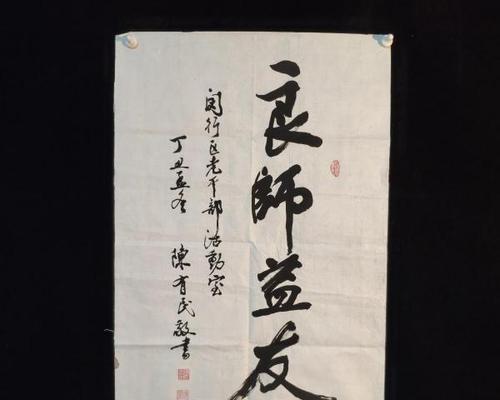 良師益友
闵行区老干部活動室
丁丑孟冬 陳有民敬書